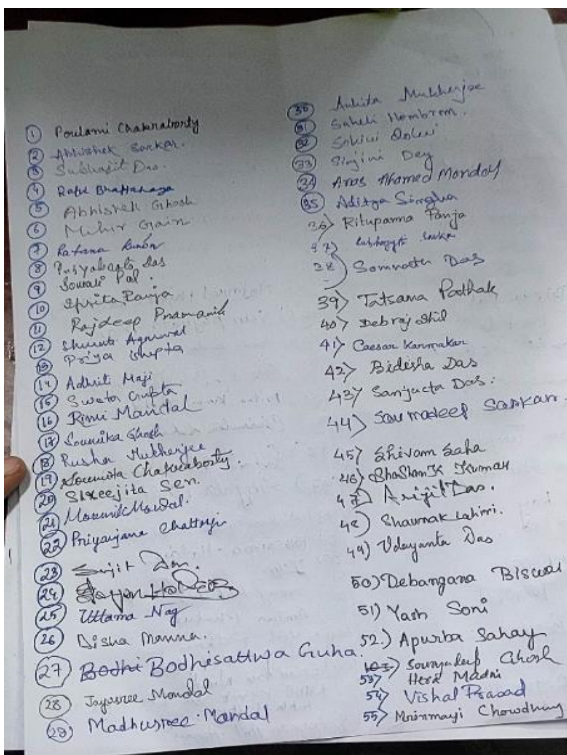 ① Poulami Chakraborty
② Abhishek Sarkar.
③ Subhajit Das.
④ Rahul Bhattacharya
⑤ Abhishek Ghosh
⑥ Mihir Gain
⑦
⑧ Das
⑨ Sonali Pal.
⑩ Ipsita Panja
⑪ Rajdeep Pramanik
⑫ Agrawal
⑬ Priya Gupta
⑭ Adhrit Maji
⑮ Sweta Gupta
⑯ Rimi Mandal
⑰ Soumika Ghosh
⑱ Rusha Mukherjee
⑲ Chakraborty.
⑳ Sreejita Sen.
㉑ Mondal.
㉒ Priyanjana Chatterji
㉓ Sujit
㉔
㉕ Uttama Nag
㉖ Disha Manna.
㉗ Bodhi Bodhisattwa Guha.
㉘ Jayasree Mondal
㉙ Madhusree Mandal
㉚ Ankita Mukherjee
㉛ Saheli Hembrom.
㉜ Sohini
㉝ Sinjini Dey
㉞ Ahamed Mondal
㉟ Aditya Singha
36) Rituparna Panja
37)
38) Somnath Das
39) Tatsama Pathak
40) Debraj Shil
41) Caesar Karmakar
42) Bidisha Das
43) Sanjucta Das.
44) Soumadeep Sarkar.
45) Shivam Saha
46) Kumar
47) Arijit Das.
48) Shaunak Lahiri.
49) Udayanta Das
50) Debangana Biswas
51) Yash Soni
52.) Apurba Sahay
53) Ghosh
Madni
54) Vishal Prasad
55) Mrinmayi Chowdhury